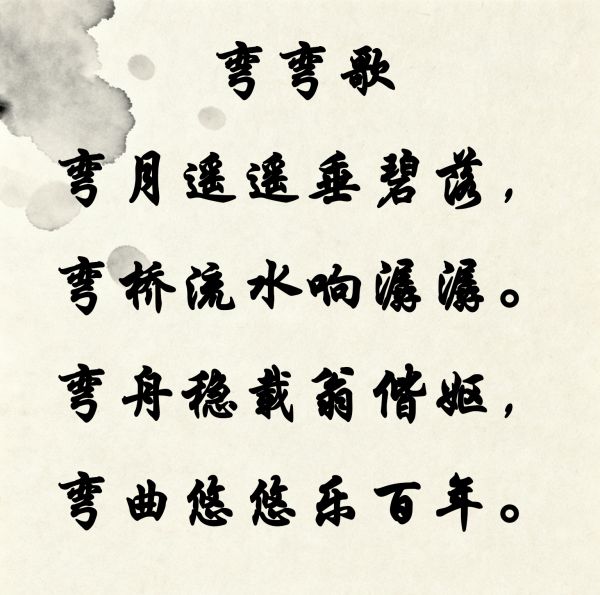 弯弯歌
弯月遥遥垂碧落，
弯桥流水响潺潺。
弯舟稳载翁偕妪，
弯曲悠悠乐百年。